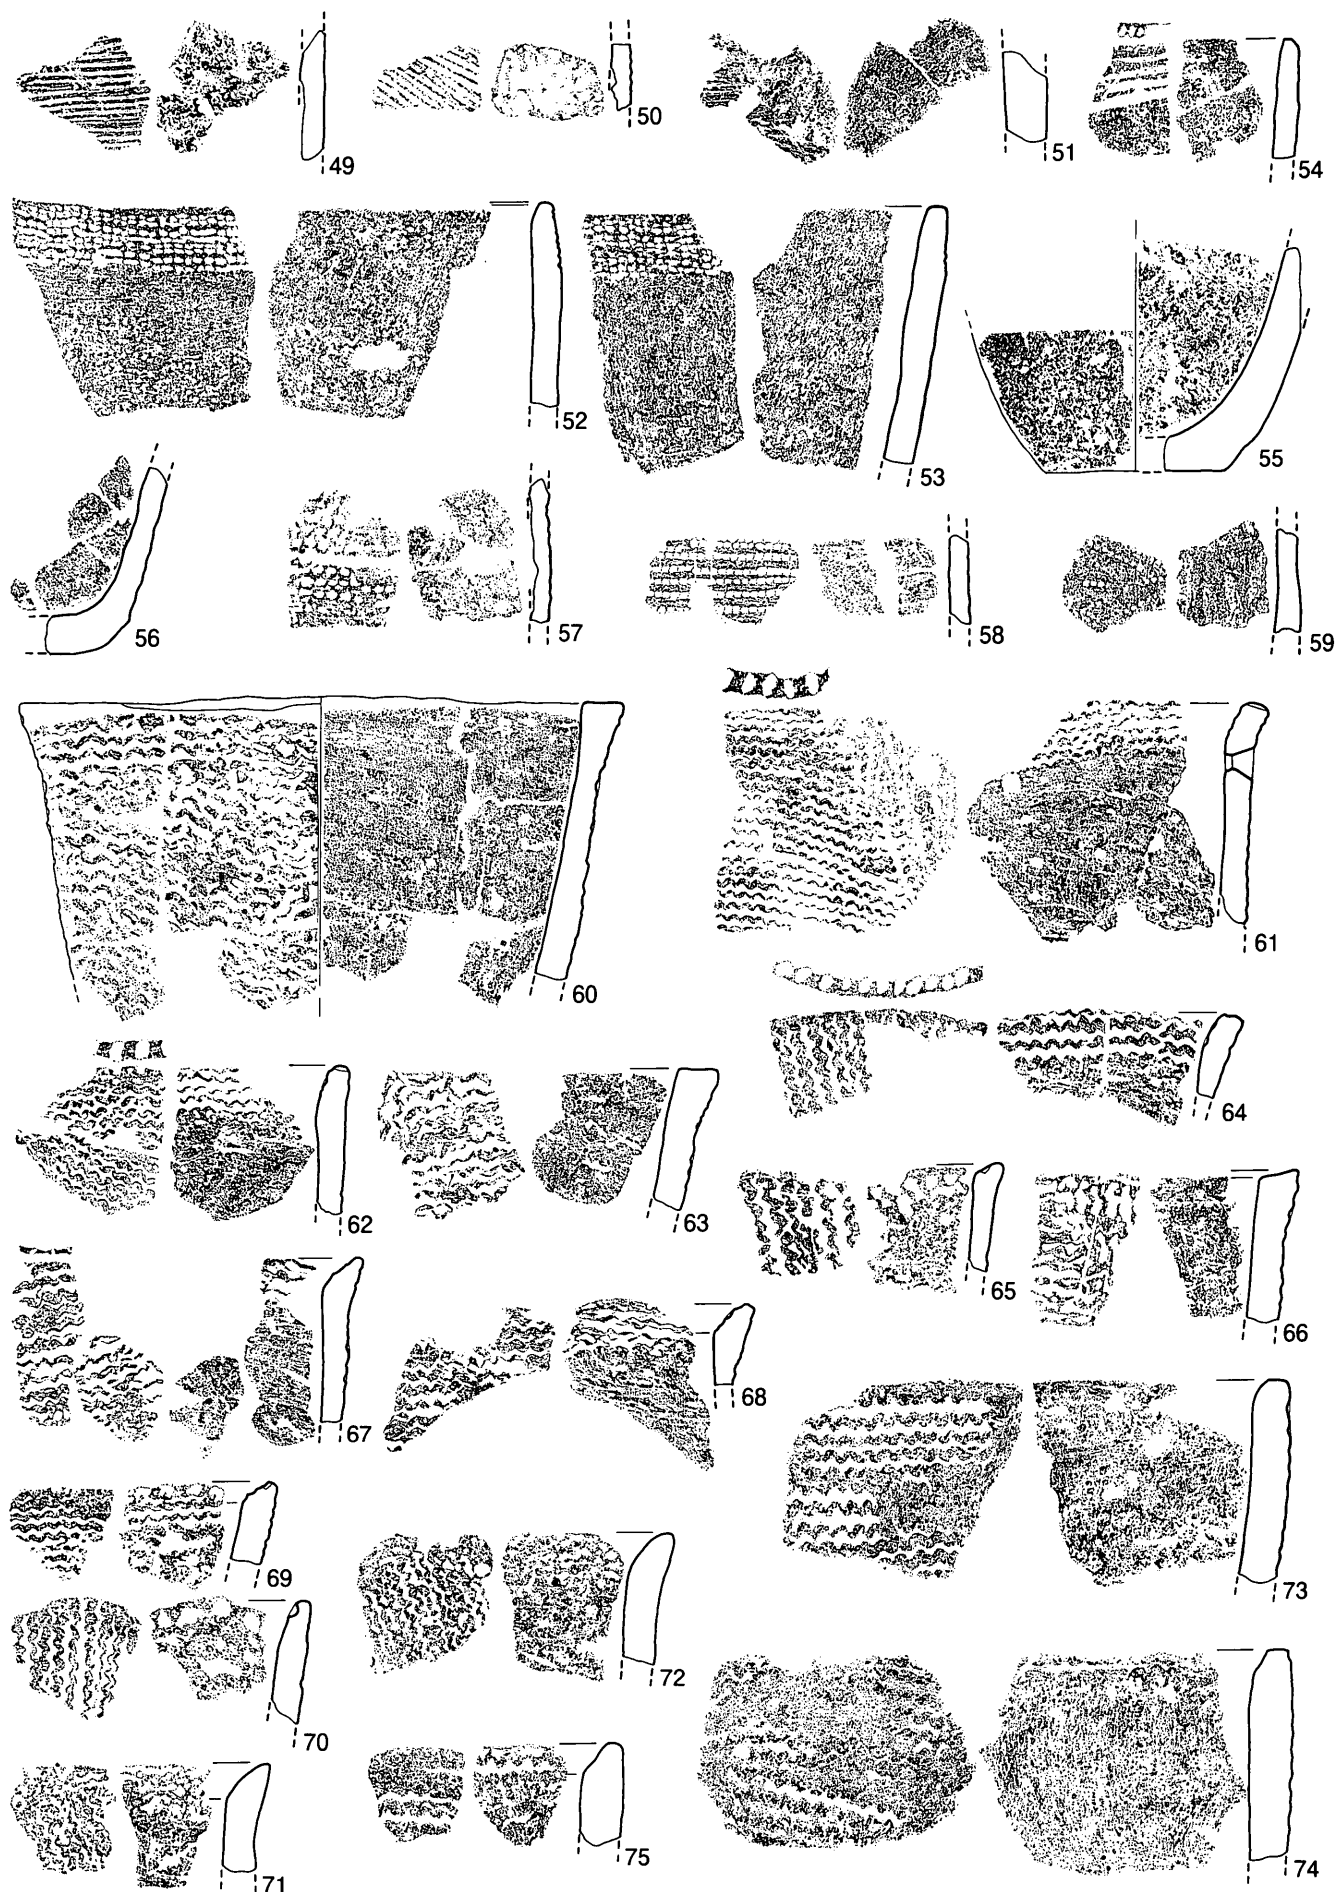 49
50
51
54
52
53
55
56
57
58
59
60
61
62
63
64
65
66
67
68
69
70
71
72
73
74
75